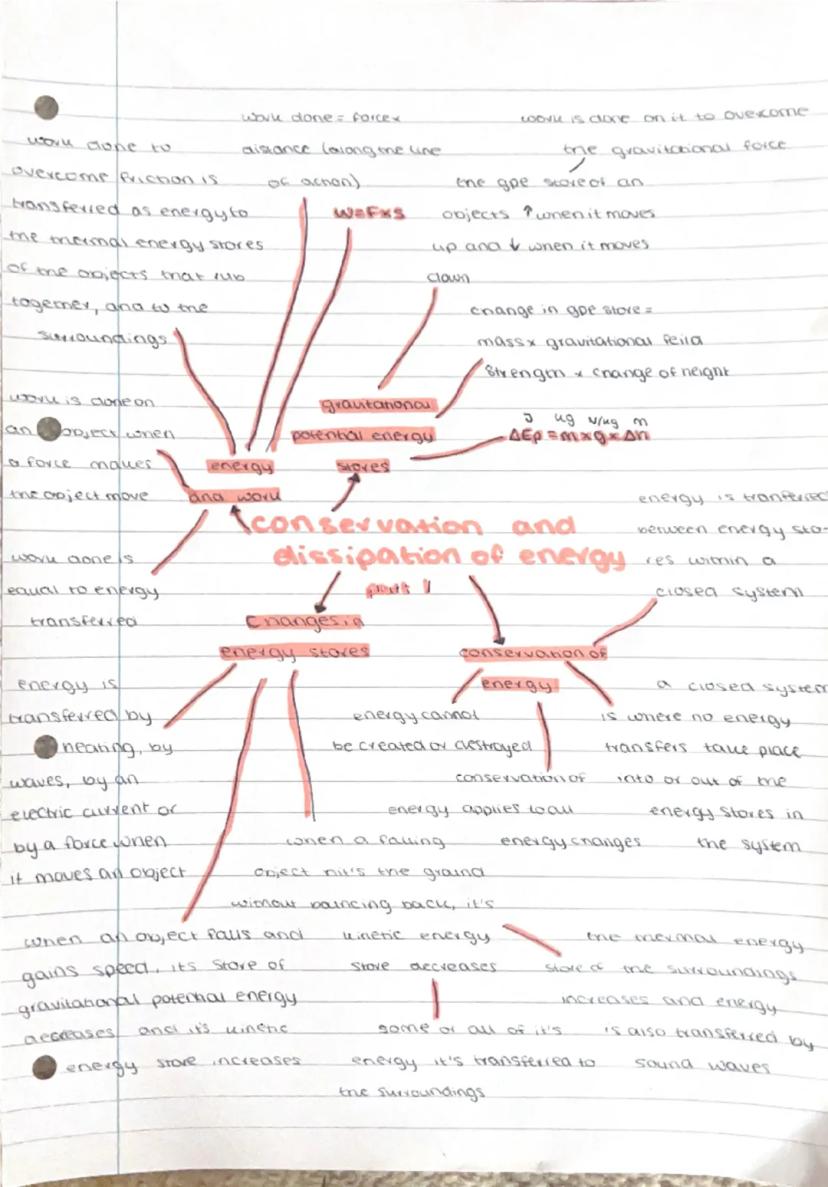 work done = force x
distance (along the line
of action)
W=F×s
work is done on it to overcome
the gravitational force
the gpe store of an
objects ↑ when it moves
up and ↓ when it moves
down
work done to
overcome friction is
transferred as energy to
the thermal energy stores
of the objects that rub
together, and to the
surroundings
change in gpe store =
mass x gravitational feild
strength x change of height
J kg N/kg m
ΔEp = m × g × Δh
gravitational
potential energy
stores
work is done on
an object when
a force makes
the object move
energy
and work
work done is
equal to energy
transferred
conservation and
dissipation of energy
part 1
energy is tranferred
between energy sto-
res within a
closed system
changes in
energy stores
conservation of
energy
energy is
transferred by
heating, by
waves, by an
electric current or
by a force when
it moves an object
energy cannot
be created or destroyed
a closed system
is where no energy
transfers take place
into or out of the
energy stores in
the system
conservation of
energy applies to all
energy changes
when a falling
object hit's the ground
without bouncing back, it's
kinetic energy
store decreases
when an object falls and
gains speed, its store of
gravitational potential energy
decreases and it's kinetic
energy store increases
some or all of it's
energy it's transferred to
the surroundings
the thermal energy
store of the surroundings
increases and energy
is also transferred by
sound waves